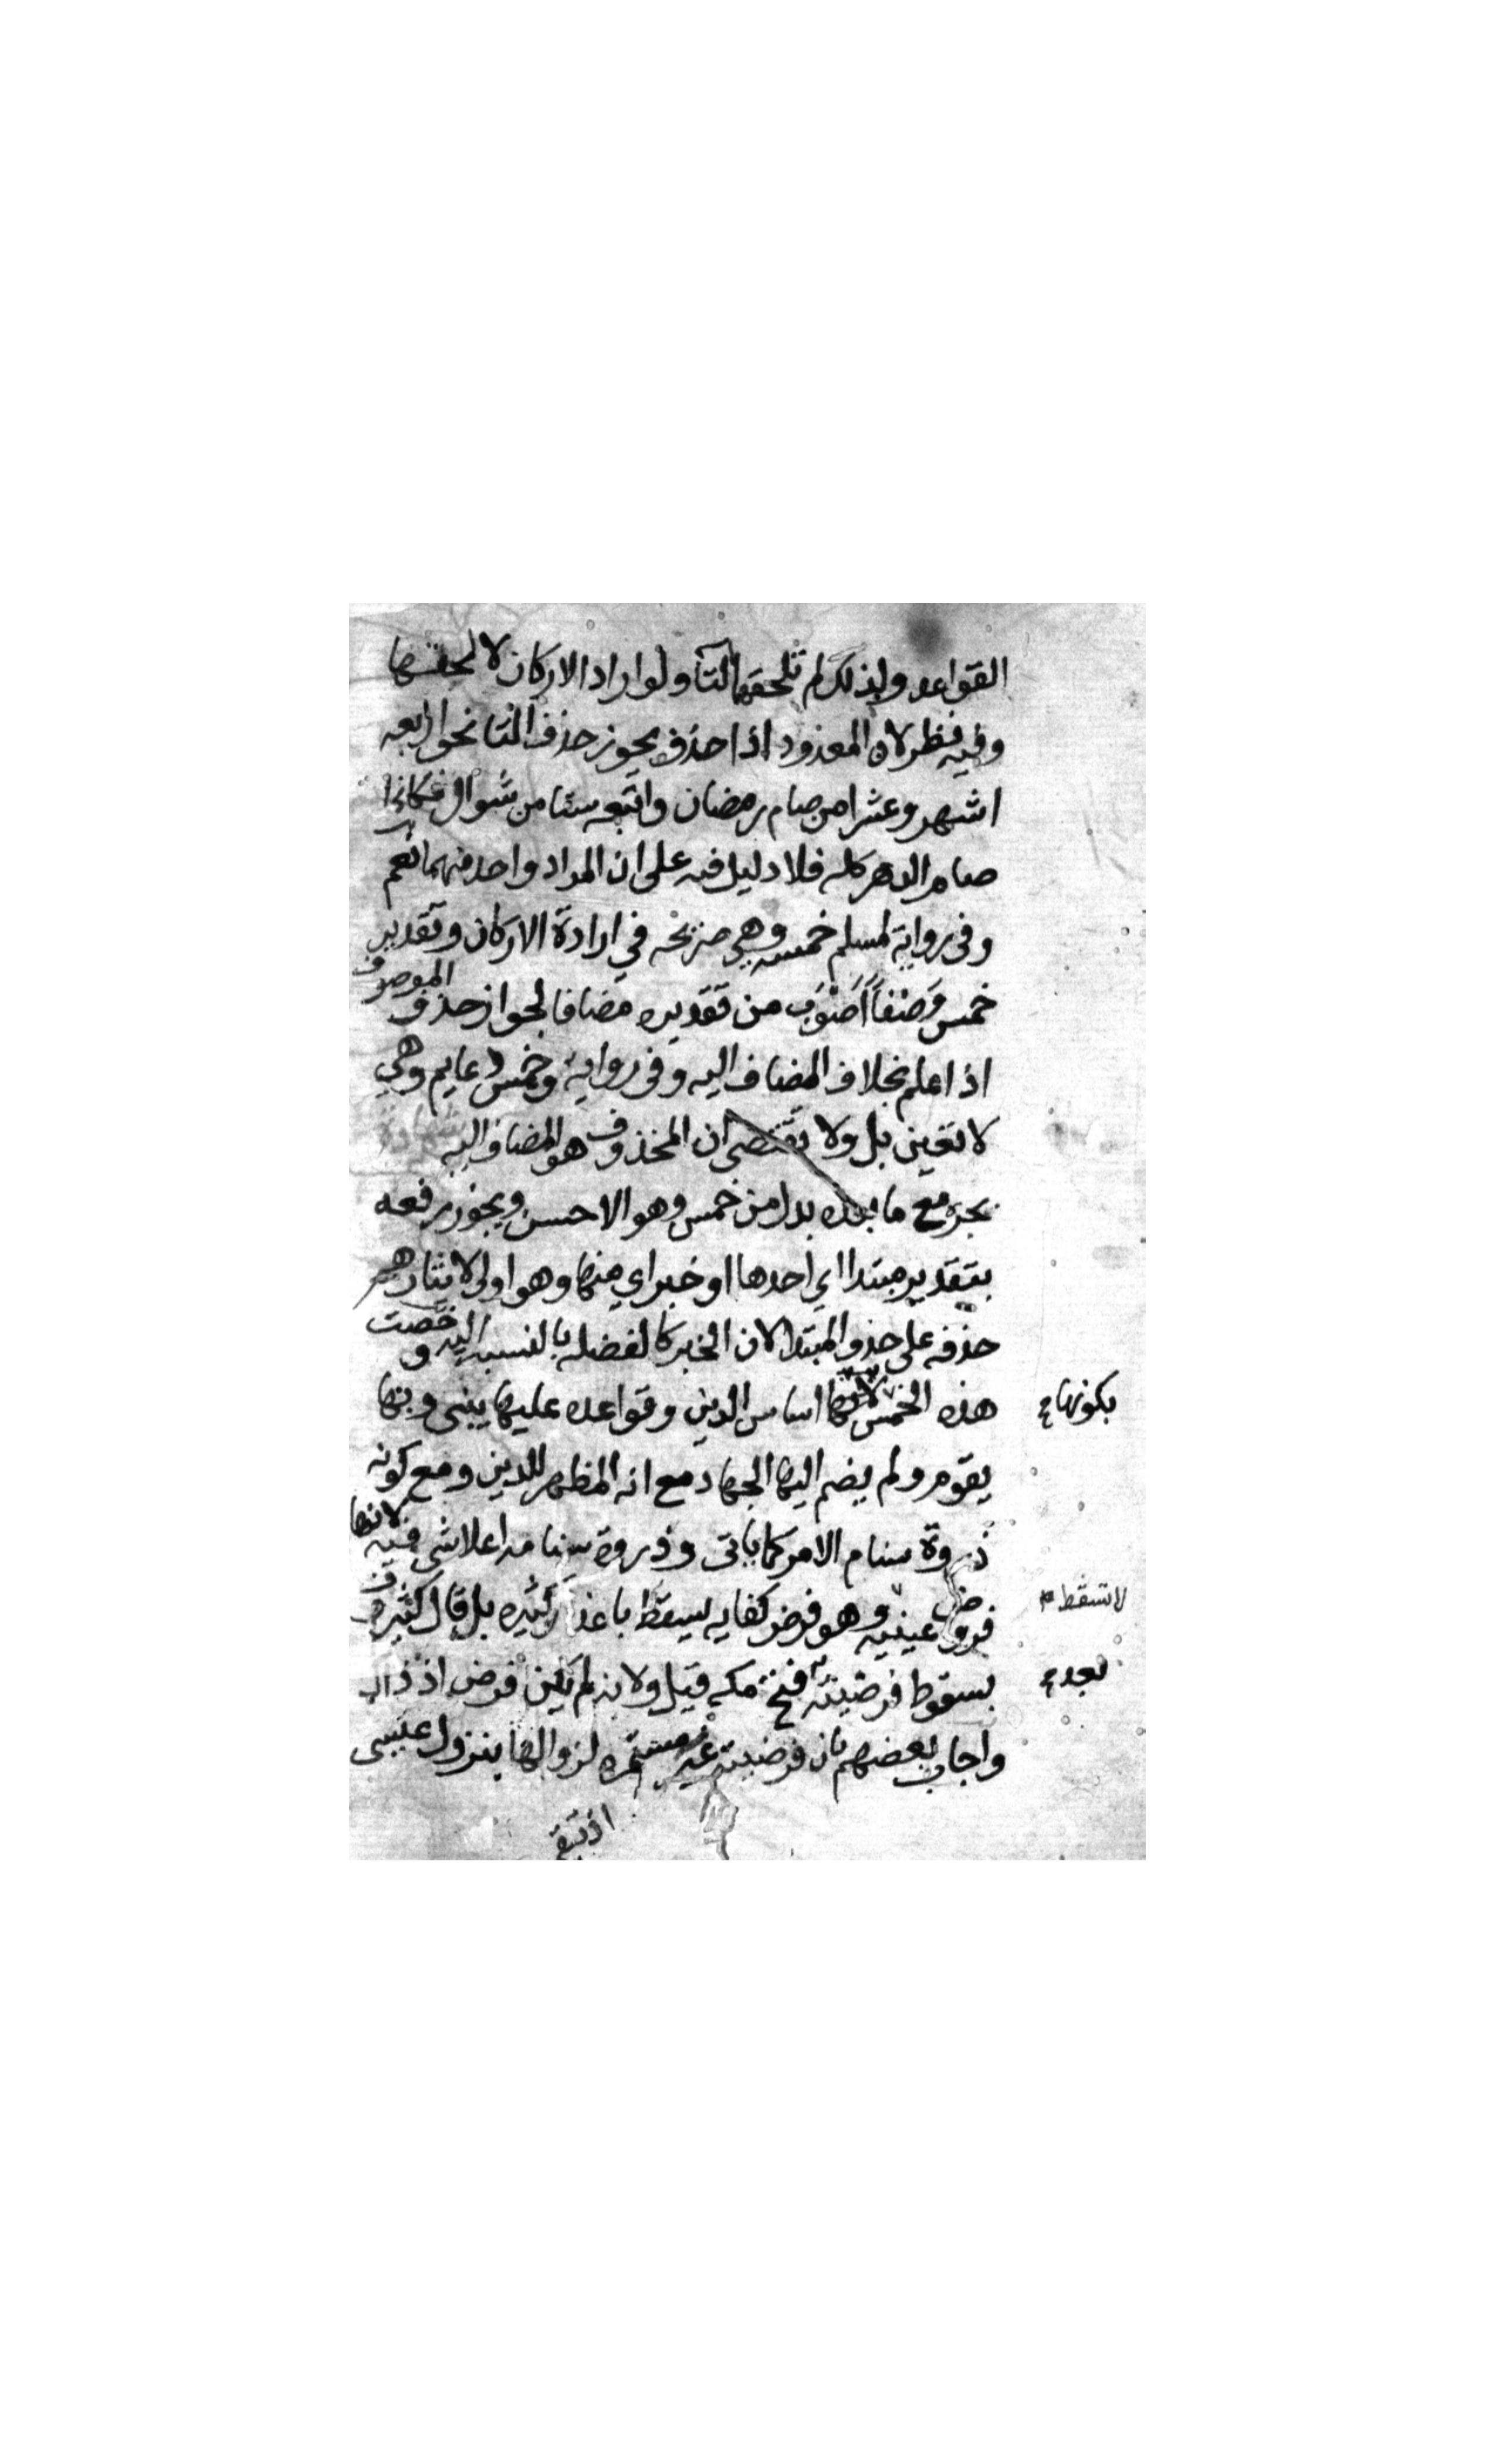 القواعد ولذلك لم تلحقها التا ولو اراد الاركان لالحقها
وفيه نظر لان المعذود اذا حذف يجوز حذف التا نحو اربعه
اشهر وعشرا من صام رمضان واتبعه ستا من شوال فكانما
صام الدهر كله فلا دليل فيه على ان المراد واحد منهما نعم
وفي رواية لمسلم خمسه وهي صريحه في ارادة الاركان وتقدير
خمس وَصْفاً أَصْوَب من تقديره مضافا لجواز حذف الموصوف
اذا علم بخلاف المضاف اليه وفي رواية وخمس دعايم وهي
لا تعين بل ولا تقتضي ان المحذوف هو المضاف اليه
بجره مع ما بعده بدل من خمس وهو الاحسن ويجوز رفعه
بتقدير مبتدا اي احدها او خبر اي منها وهو اولى لايثارهم
حذفه على حذف المبتدا لان الخبر كالفضله بالنسبه اليه وخصت
هذه الخمس لانها اساس الدين وقواعده عليها يبنى وبها
بكونها
يقوم ولم يضم اليها الجهاد مع انه المظهر للدين ومع كونه
ذروة سنام الامر كما ياتي وذروة سنامه اعلا شي فيه لانها
فروض عينيه وهو فرض كفايه يسقط باعذار كثيره بل قال كثيرون
لا تسقط
بسقوط فرضيته فتح مكه قيل ولانه لم يكن فرض اذ ذاك
بعد
واجاب بعضهم بان فرضيته غير مستمره لزوالها بنزول عيسى
اذ تبقى